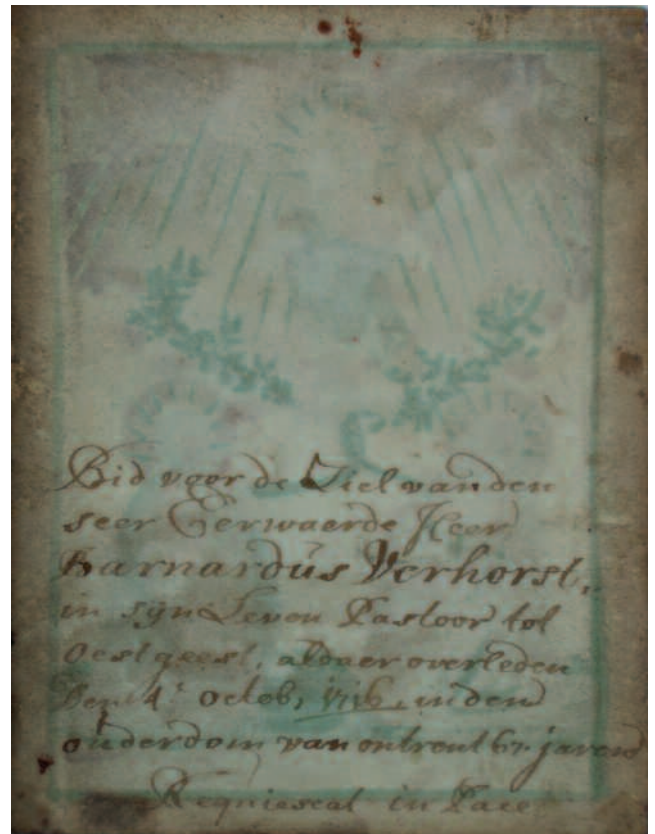 Bid voor de Ziel van den
seer Eerwaerde Heer
Barnardus Verhorst,
in sijn Leven Pastoor tol
Oestgeest, aldaer overleden
Den 4. octob, 1716, in den
ouderdom van ontrent 67. jaren
Requiescat in Pace